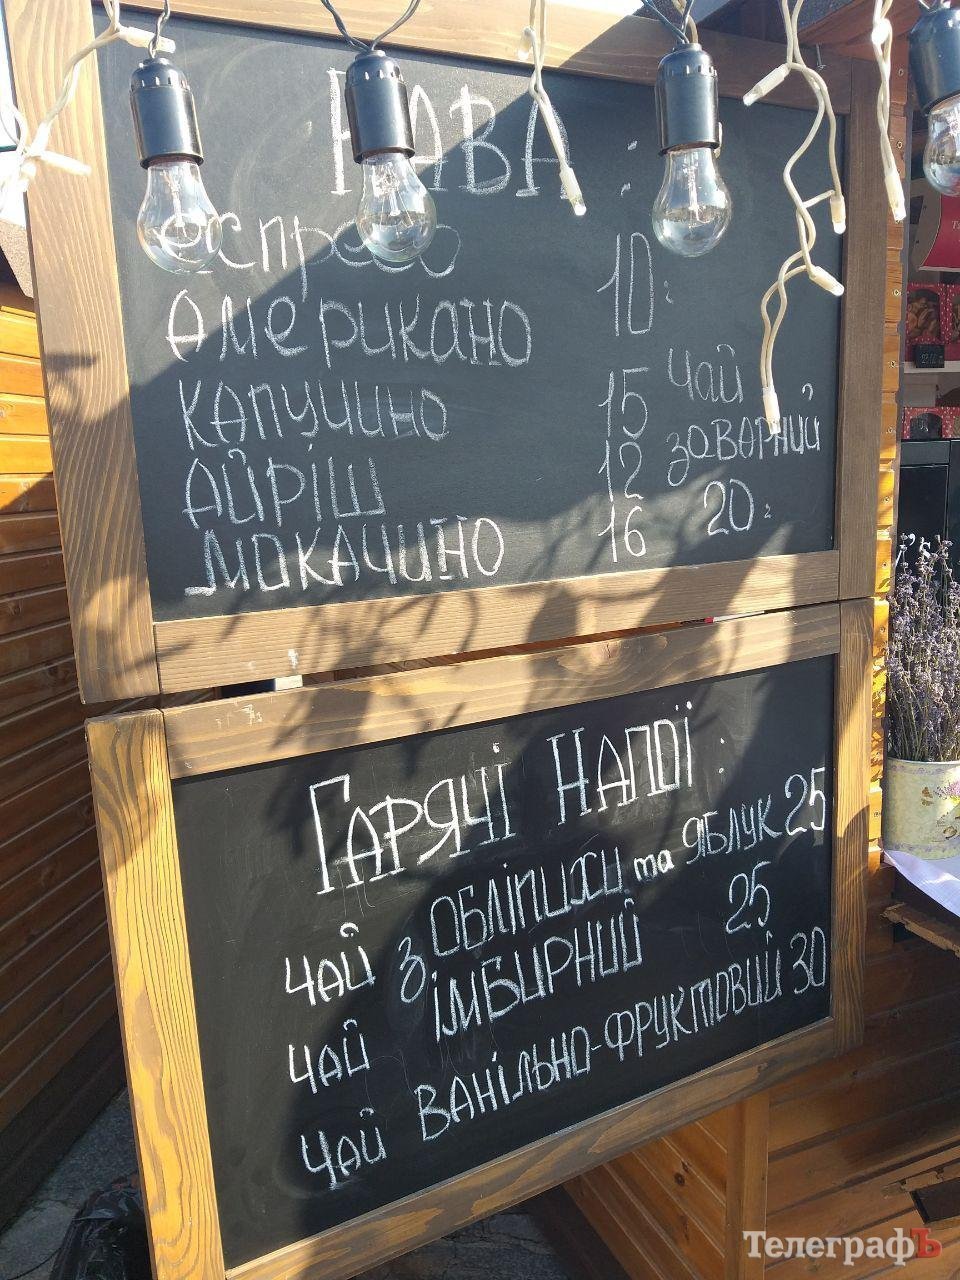 КАВА:
еспресо
Американо 10.
Капучино 15
Айріш 12
Мокачино 16
Чай
заварний
20
Гарячі Напої:
чай з обліпихи та яблук 25
чай імбирний 25
чай ванільно-фруктовий 30
ТелеграфЪ